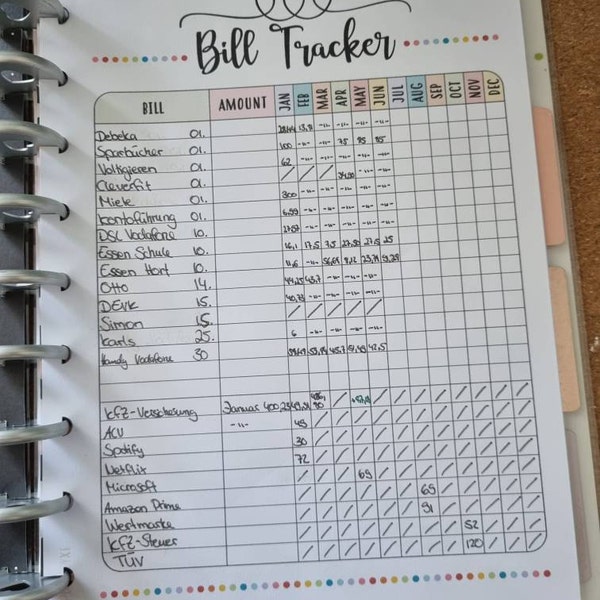 Bill Tracker
BILL AMOUNT JAN FEB MAR APR MAY JUN JUL AUG SEP OCT NOV DEC
Debeka 01. -"- -"- -"- -"-
Sparbücher 01. 100 -"- -"- 75 85 85
Voltigieren 01. 62 -"- -"- -"- -"- -"-
Cleverfit 01. / / / 34,90 -"- -"-
Miete 01. 300 -"- -"- -"- -"- -"-
Kontoführung 01. 6,99 -"- -"- -"- -"- -"-
DSL Vodafone 10. -"- -"- -"- -"- -"-
Essen Schule 10. 16,1 17,5 7,5 27,50 27,5 25
Essen Hort 10. 11,6 -"-
Otto 14. 44,25 43,7 -"- -"- -"- -"-
DEVK 15. 40,73 -"- -"- -"- -"- -"-
Simon 15. / / / / / /
Karls 25. 6 -"- -"- -"- -"- -"-
Handy Vodafone 30 42,5
KFZ-Versicherung Januar 400,23 / / / / / / / / /
ACV -"- 45 / / / / / / / / / /
Spotify 30 / / / / / / / / / /
Netflix 72 / / / / / / / / / /
Microsoft / / / 69 / / / / / / /
Amazon Prime / / / / / / 69 / / / /
Wertmarke / / / / / / 91 / / / /
KFZ-Steuer / / / / / / / / 52 / /
TÜV / / / / / / / / 120 / /